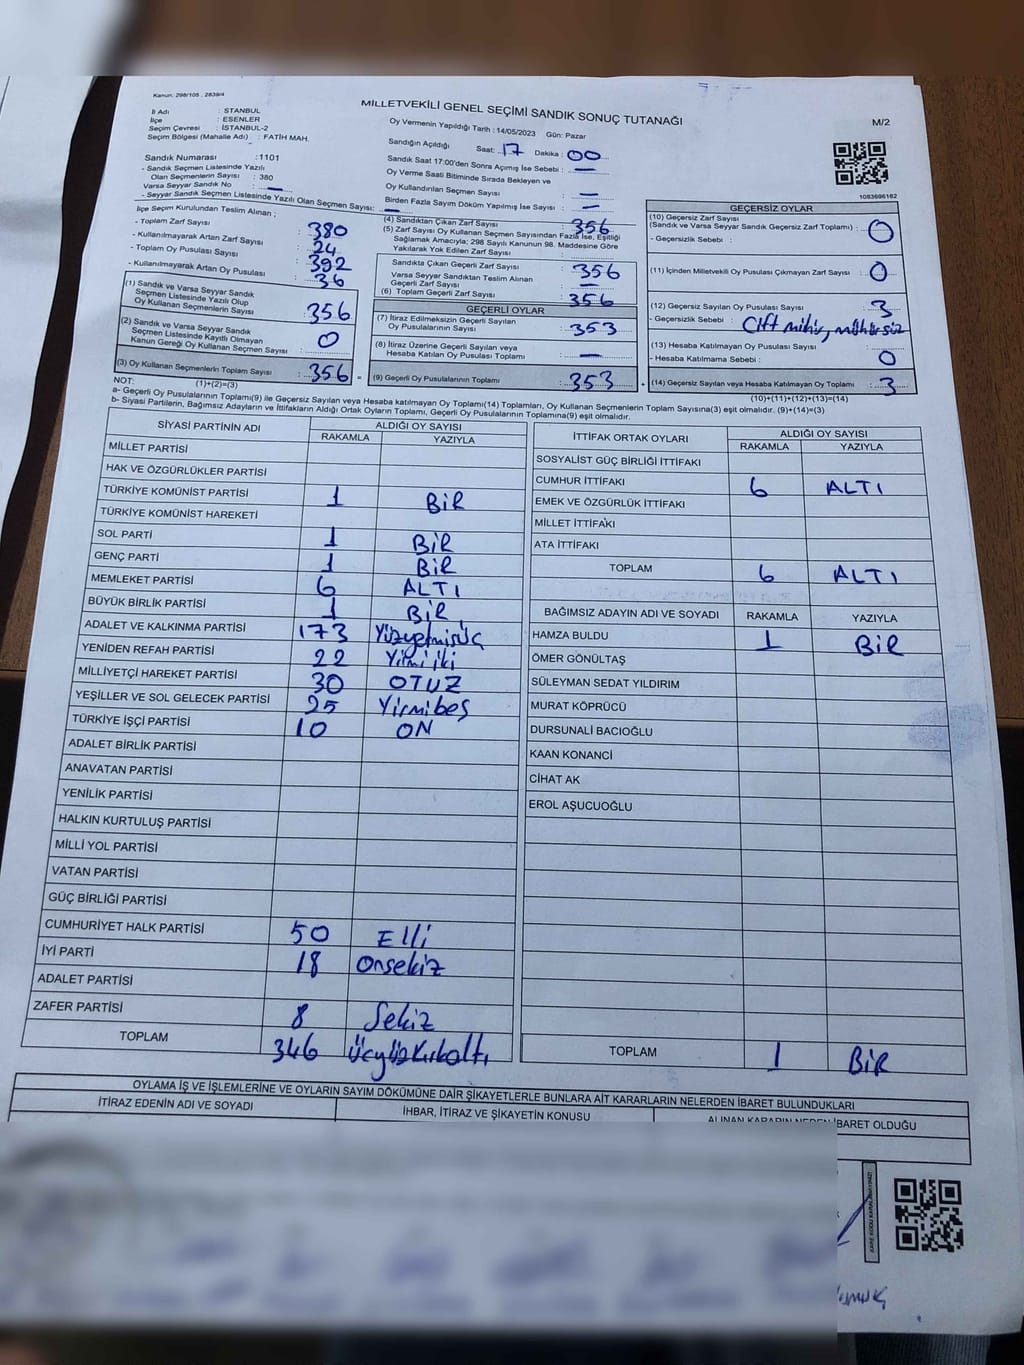 Kanun: 298/105 , 2839/4
MİLLETVEKİLİ GENEL SEÇİMİ SANDIK SONUÇ TUTANAĞI
M/2
İl Adı : STANBUL
İlçe : ESENLER
Seçim Çevresi : İSTANBUL-2
Seçim Bölgesi (Mahalle Adı) : FATİH MAH.
Sandık Numarası :1101
- Sandık Seçmen Listesinde Yazılı
Olan Seçmenlerin Sayısı : 380
Varsa Seyyar Sandık No : —
- Seyyar Sandık Seçmen Listesinde Yazılı Olan Seçmen Sayısı: —
Oy Vermenin Yapıldığı Tarih : 14/05/2023 Gün: Pazar
Sandığın Açıldığı Saat: 17 Dakika : 00
Sandık Saat 17:00'den Sonra Açımış İse Sebebi : —
Oy Verme Saati Bitiminde Sırada Bekleyen ve
Oy Kullandırılan Seçmen Sayısı : —
Birden Fazla Sayım Döküm Yapılmış İse Sayısı : —
1083696182
İlçe Seçim Kurulundan Teslim Alınan ;
- Toplam Zarf Sayısı : 380
- Kullanılmayarak Artan Zarf Sayısı : 24
- Toplam Oy Pusulası Sayısı : 392
- Kullanılmayarak Artan Oy Pusulası : 36
(1) Sandık ve Varsa Seyyar Sandık
Seçmen Listesinde Yazılı Olup
Oy Kullanan Seçmenlerin Sayısı : 356
(2) Sandık ve Varsa Seyyar Sandık
Seçmen Listesinde Kayıtlı Olmayan
Kanun Gereği Oy Kullanan Seçmen Sayısı : 0
(3) Oy Kullanan Seçmenlerin Toplam Sayısı : 356
(1)+(2)=(3)
(4) Sandıktan Çıkan Zarf Sayısı : 356
(5) Zarf Sayısı Oy Kullanan Seçmen Sayısından Fazla İse, Eşitliği
Sağlamak Amacıyla; 298 Sayılı Kanunun 98. Maddesine Göre
Yakılarak Yok Edilen Zarf Sayısı :
Sandıkta Çıkan Geçerli Zarf Sayısı : 356
Varsa Seyyar Sandıktan Teslim Alınan
Geçerli Zarf Sayısı : —
(6) Toplam Geçerli Zarf Sayısı : 356
GEÇERLİ OYLAR
(7) İtiraz Edilmeksizin Geçerli Sayılan
Oy Pusulalarının Sayısı : 353
(8) İtiraz Üzerine Geçerli Sayılan veya
Hesaba Katılan Oy Pusulası Toplamı : —
(9) Geçerli Oy Pusulalarının Toplamı : 353
GEÇERSİZ OYLAR
(10) Geçersiz Zarf Sayısı
(Sandık ve Varsa Seyyar Sandık Geçersiz Zarf Toplamı) : 0
- Geçersizlik Sebebi :
(11) İçinden Milletvekili Oy Pusulası Çıkmayan Zarf Sayısı : 0
(12) Geçersiz Sayılan Oy Pusulası Sayısı : 3
- Geçersizlik Sebebi : Çift mühür, mühürsüz
(13) Hesaba Katılmayan Oy Pusulası Sayısı : 0
- Hesaba Katılmama Sebebi :
(14) Geçersiz Sayılan veya Hesaba Katılmayan Oy Toplamı : 3
(10)+(11)+(12)+(13)=(14)
NOT:
a- Geçerli Oy Pusulalarının Toplamı(9) ile Geçersiz Sayılan veya Hesaba Katılmayan Oy Toplamı(14) Toplamları, Oy Kullanan Seçmenlerin Toplam Sayısına(3) eşit olmalıdır. (9)+(14)=(3)
b- Siyasi Partilerin, Bağımsız Adayların ve İttifakların Aldığı Ortak Oyların Toplamı, Geçerli Oy Pusulalarının Toplamına(9) eşit olmalıdır.
SİYASİ PARTİNİN ADI ALDIĞI OY SAYISI
RAKAMLA YAZIYLA
MİLLET PARTİSİ
HAK VE ÖZGÜRLÜKLER PARTİSİ
TÜRKİYE KOMÜNİST PARTİSİ 1 BİR
TÜRKİYE KOMÜNİST HAREKETİ
SOL PARTİ 1 BİR
GENÇ PARTİ 1 BİR
MEMLEKET PARTİSİ 6 ALTI
BÜYÜK BİRLİK PARTİSİ 1 BİR
ADALET VE KALKINMA PARTİSİ 173 Yüzyetmişüç
YENİDEN REFAH PARTİSİ 22 Yirmiiki
MİLLİYETÇİ HAREKET PARTİSİ 30 OTUZ
YEŞİLLER VE SOL GELECEK PARTİSİ 25 Yirmibeş
TÜRKİYE İŞÇİ PARTİSİ 10 ON
ADALET BİRLİK PARTİSİ
ANAVATAN PARTİSİ
YENİLİK PARTİSİ
HALKIN KURTULUŞ PARTİSİ
MİLLİ YOL PARTİSİ
VATAN PARTİSİ
GÜÇ BİRLİĞİ PARTİSİ
CUMHURİYET HALK PARTİSİ 50 Elli
İYİ PARTİ 18 Onsekiz
ADALET PARTİSİ
ZAFER PARTİSİ 8 Sekiz
TOPLAM 346 Üçyüzkırkaltı
İTTİFAK ORTAK OYLARI ALDIĞI OY SAYISI
RAKAMLA YAZIYLA
SOSYALİST GÜÇ BİRLİĞİ İTTİFAKI
CUMHUR İTTİFAKI 6 ALTI
EMEK VE ÖZGÜRLÜK İTTİFAKI
MİLLET İTTİFAKI
ATA İTTİFAKI
TOPLAM 6 ALTI
BAĞIMSIZ ADAYIN ADI VE SOYADI RAKAMLA YAZIYLA
HAMZA BULDU 1 BİR
ÖMER GÖNÜLTAŞ
SÜLEYMAN SEDAT YILDIRIM
MURAT KÖPRÜCÜ
DURSUNALİ BACIOĞLU
KAAN KONANCİ
CİHAT AK
EROL AŞUCUOĞLU
TOPLAM 1 BİR
OYLAMA İŞ VE İŞLEMLERİNE VE OYLARIN SAYIM DÖKÜMÜNE DAİR ŞİKAYETLERLE BUNLARA AİT KARARLARIN NELERDEN İBARET BULUNDUKLARI
İTİRAZ EDENİN ADI VE SOYADI İHBAR, İTİRAZ VE ŞİKAYETİN KONUSU ALINAN KARARIN NEDEN İBARET OLDUĞU